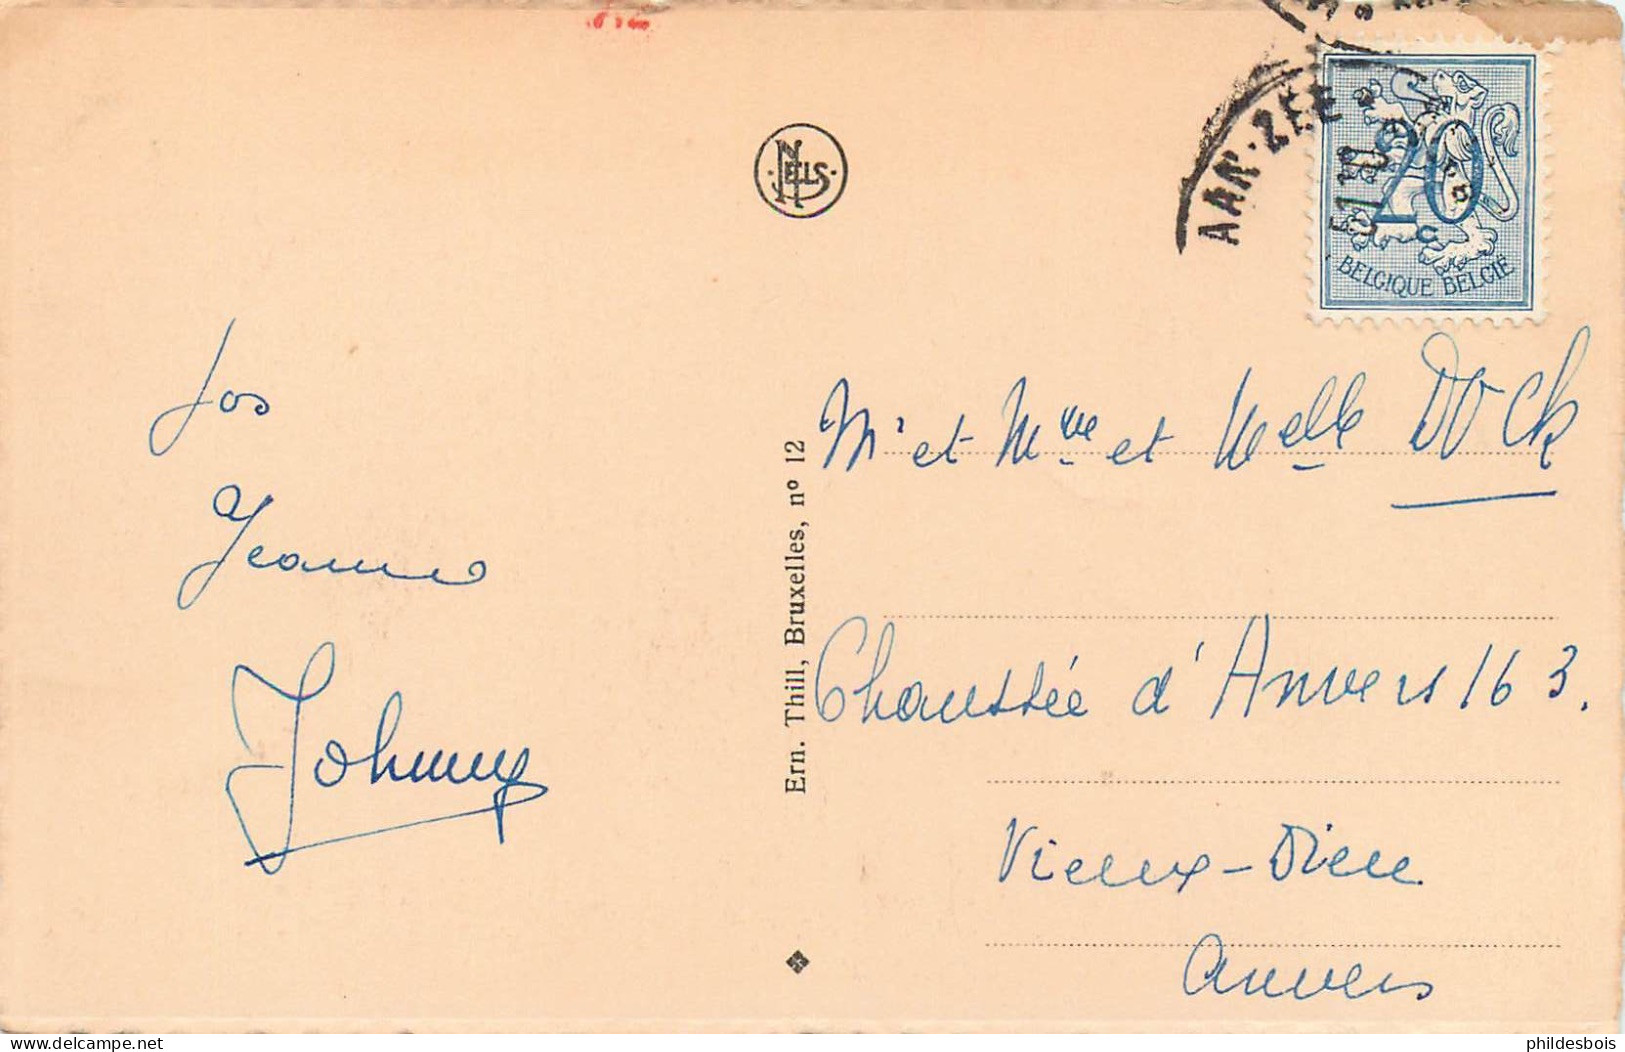 NELS
AAN-ZEE
20
c
BELGIQUE BELGIË
Jos
Jeanne
Johnny
Ern. Thill, Bruxelles, nº 12
Mr et Mme et Melle DOCK
Chaussée d'Anvers 163.
Vieux-Dieu
Anvers
delcampe.net
philesbois